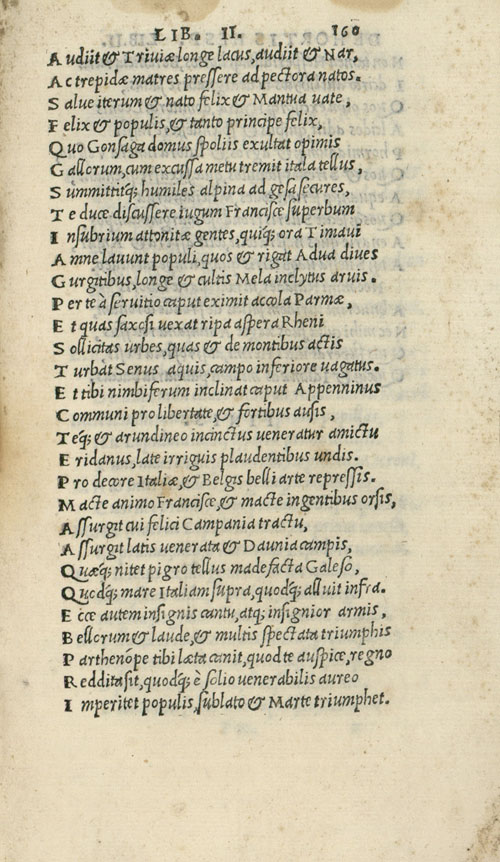 LIB. II. 160
A udiit & Triuiæ longe lacus, audiit & Nar,
A c trepidæ matres pressere ad pectora natos.
S alue iterum & nato felix & Mantua uate,
F elix & populis, & tanto principe felix,
Q uo Gonsaga domus spoliis exultat opimis
G allorum, cum excussa metu tremit itala tellus,
S ummittitq; humiles alpina ad gesa secures,
T e duce discussere iugum Francisce superbum
I nsubrium attonitæ gentes, quiq; ora Timaui
A mne lauunt populi, quos & rigat Adua diues
G urgitibus, longe & cultis Mela inclytus aruis.
P er te à seruitio caput eximit accola Parmæ,
E t quas saxosi uexat ripa aspera Rheni
S ollicitas urbes, quas & de montibus actis
T urbat Senus aquis, campo inferiore uagatus.
E t tibi nimbiferum inclinat caput Appenninus
C ommuni pro libertate, & fortibus ausis,
T eq; & arundineo incinctus ueneratur amictu
E ridanus, late irriguis plaudentibus undis.
P ro decore Italiæ, & Belgis belli arte repressis.
M acte animo Francisce, & macte ingentibus orsis,
A ssurgit cui felici Campania tractu,
A ssurgit latis uenerata & Daunia campis,
Q uæq; nitet pigro tellus madefacta Galeso,
Q uodq; mare Italiam supra, quodq; alluit infra.
E cce autem insignis cantu, atq; insignior armis,
B ellorum & laude, & multis spectata triumphis
P arthenope tibi læta canit, quod te auspice, regno
R eddita sit, quodq; è solio uenerabilis aureo
I mperitet populis, sublato & Marte triumphet.